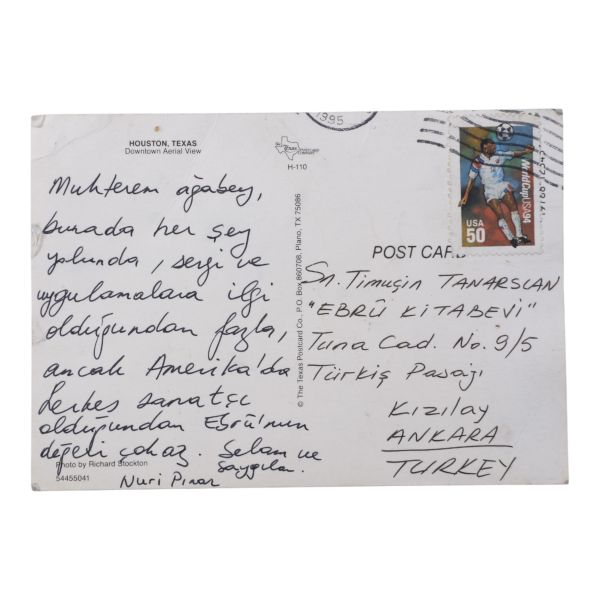 1995
HOUSTON, TEXAS
Downtown Aerial View
H-110
World Cup USA 94
USA
50
POST CARD
© The Texas Postcard Co., P.O. Box 860708, Plano, TX 75086
Muhterem ağabey,
burada her şey
yolunda, sergi ve
uygulamalara ilgi
olduğundan fazla,
ancak Amerika'da
herkes sanatçı
olduğundan Ebrû'nun
değeri çok az. Selam ve
saygılar.
Nuri Pınar
Photo by Richard Stockton
54455041
Sn. Timuçin TANARSLAN
"EBRÛ KİTABEVİ"
Tuna Cad. No. 9/5
Türkiş Pasajı
Kızılay
ANKARA
TURKEY